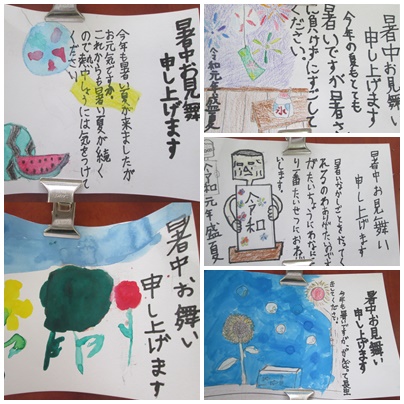 暑中お見舞
申し上げます
今年も暑い夏が来ましたが
お元気ですか。
これからも暑い夏が続く
ので熱中しょうには気をつけて
ください。
暑中お見舞
申し上げます
今年の夏もとても
暑いですが暑さ
に負けずにすごして
ください。
令和元年盛夏
氷
暑中お見舞い
申し上げます
いします。
令和元年盛夏
令和
暑中お舞い
申し上げます
暑中お見舞い
申し上げます
今年も暑いですが、
ください。